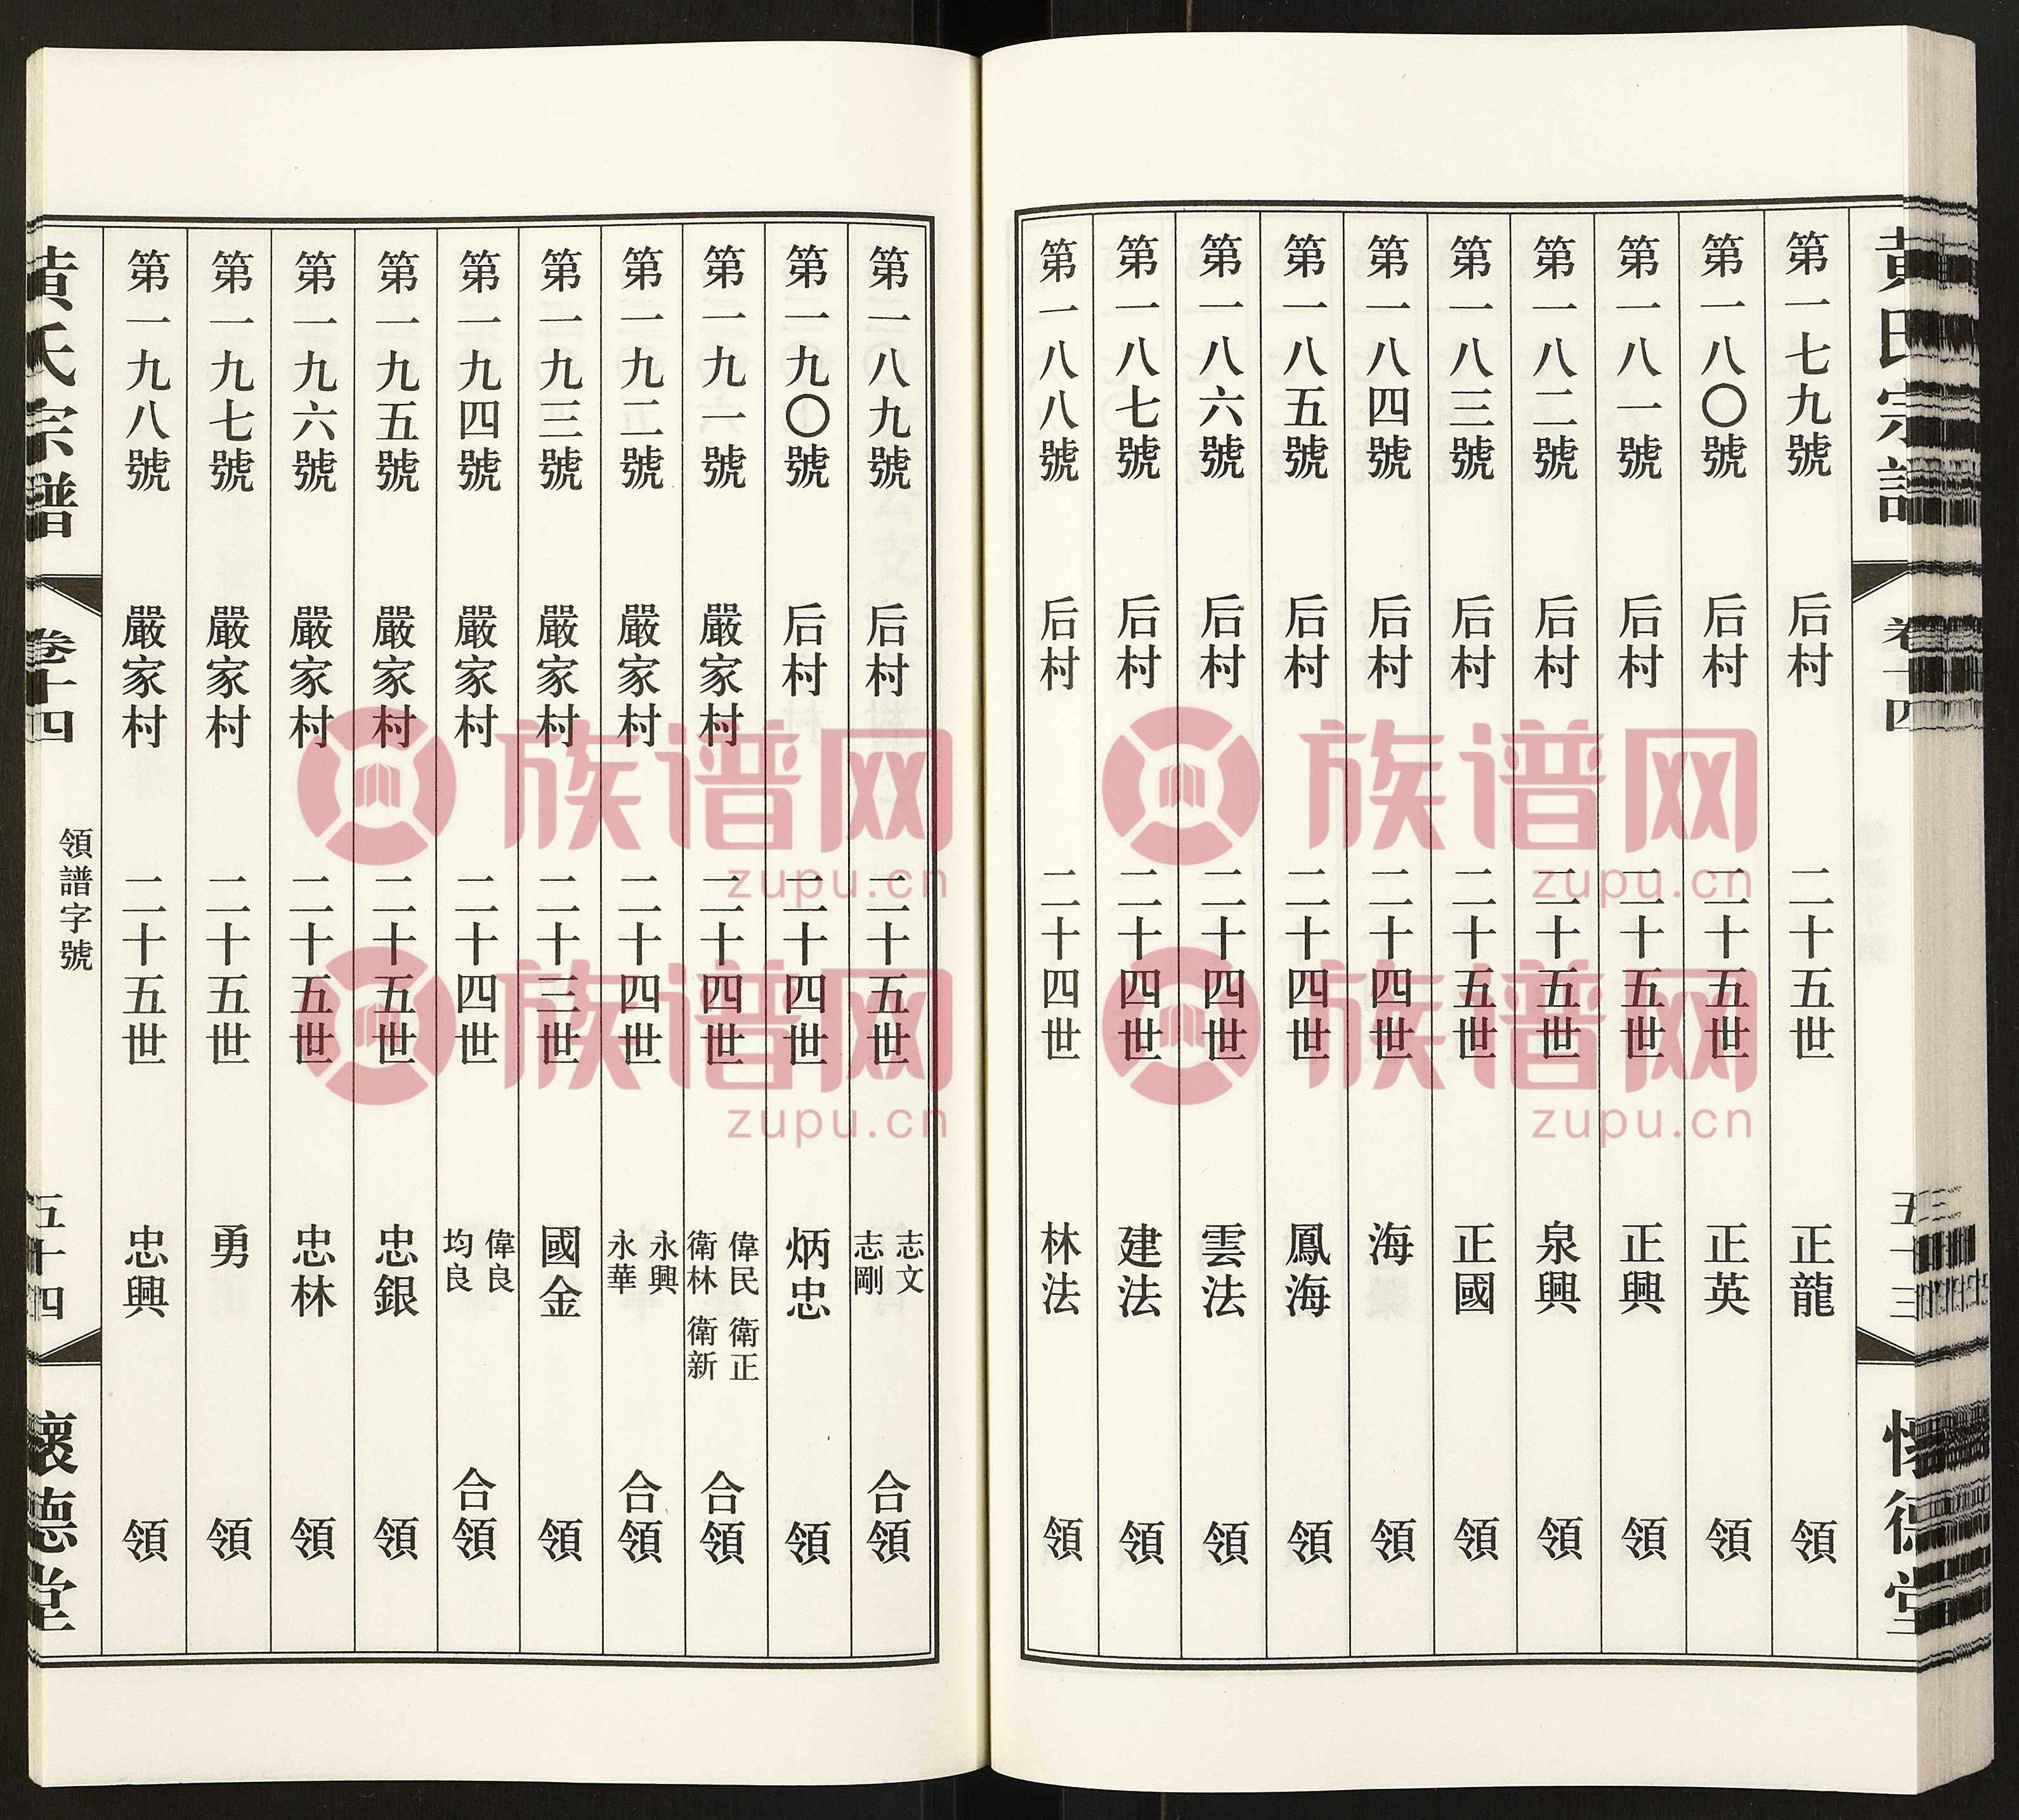 黄氏宗譜 卷十四 五十三 懷德堂
第一七九號 后村 二十五世 正龍 領
第一八〇號 后村 二十五世 正英 領
第一八一號 后村 二十五世 正興 領
第一八二號 后村 二十五世 泉興 領
第一八三號 后村 二十五世 正國 領
第一八四號 后村 二十四世 海 領
第一八五號 后村 二十四世 鳳海 領
第一八六號 后村 二十四世 雲法 領
第一八七號 后村 二十四世 建法 領
第一八八號 后村 二十四世 林法 領
第一八九號 后村 二十五世 志文 志剛 合領
第一九〇號 后村 二十四世 炳忠 領
第一九一號 嚴家村 二十四世 偉民 衛正 衛林 衛新 合領
第一九二號 嚴家村 二十四世 永興 永華 合領
第一九三號 嚴家村 二十三世 國金 領
第一九四號 嚴家村 二十四世 偉良 均良 合領
第一九五號 嚴家村 二十五世 忠銀 領
第一九六號 嚴家村 二十五世 忠林 領
第一九七號 嚴家村 二十五世 勇 領
第一九八號 嚴家村 二十五世 忠興 領
黄氏宗譜 卷十四 領譜字號 五十四 懷德堂
族谱网
zupu.cn
族谱网
zupu.cn
族谱网
zupu.cn
族谱网
zupu.cn